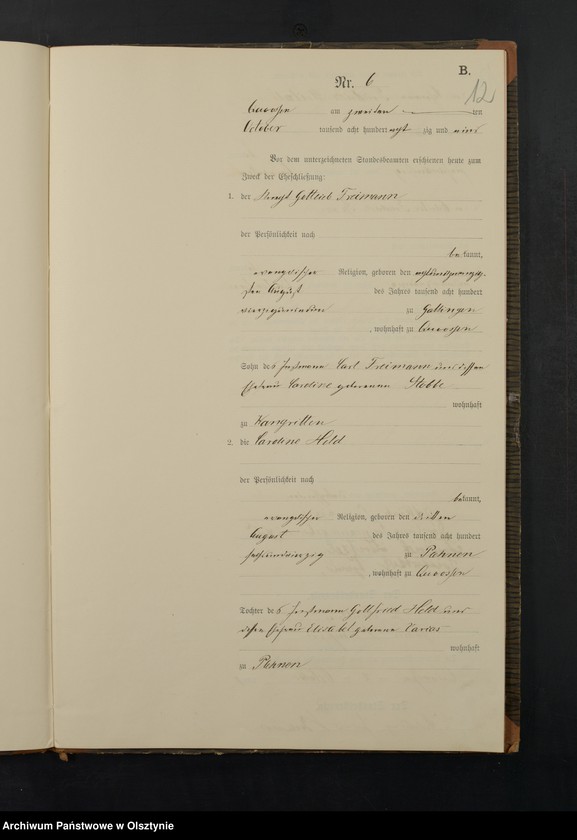 B.
Nr. 6
12
am zweiten ten
October tausend acht hundert acht zig und eins
Vor dem unterzeichneten Standesbeamten erschienen heute zum
Zweck der Eheschließung:
1. der Gottlieb Freimann
der Persönlichkeit nach
be kannt,
evangelischer Religion, geboren den
sten August des Jahres tausend acht hundert
zu
, wohnhaft zu
Sohn des Carl Freimann und dessen
Ehefrau Caroline geborenen Stobbe
wohnhaft
zu Kangritten
2. die Caroline Held
der Persönlichkeit nach
bekannt,
evangelischer Religion, geboren den dritten
August des Jahres tausend acht hundert
sechsundvierzig zu Pahnen
, wohnhaft zu
Tochter des Gottfried Held und
dessen Ehefrau geborene
wohnhaft
zu Pahnen
Archiwum Państwowe w Olsztynie